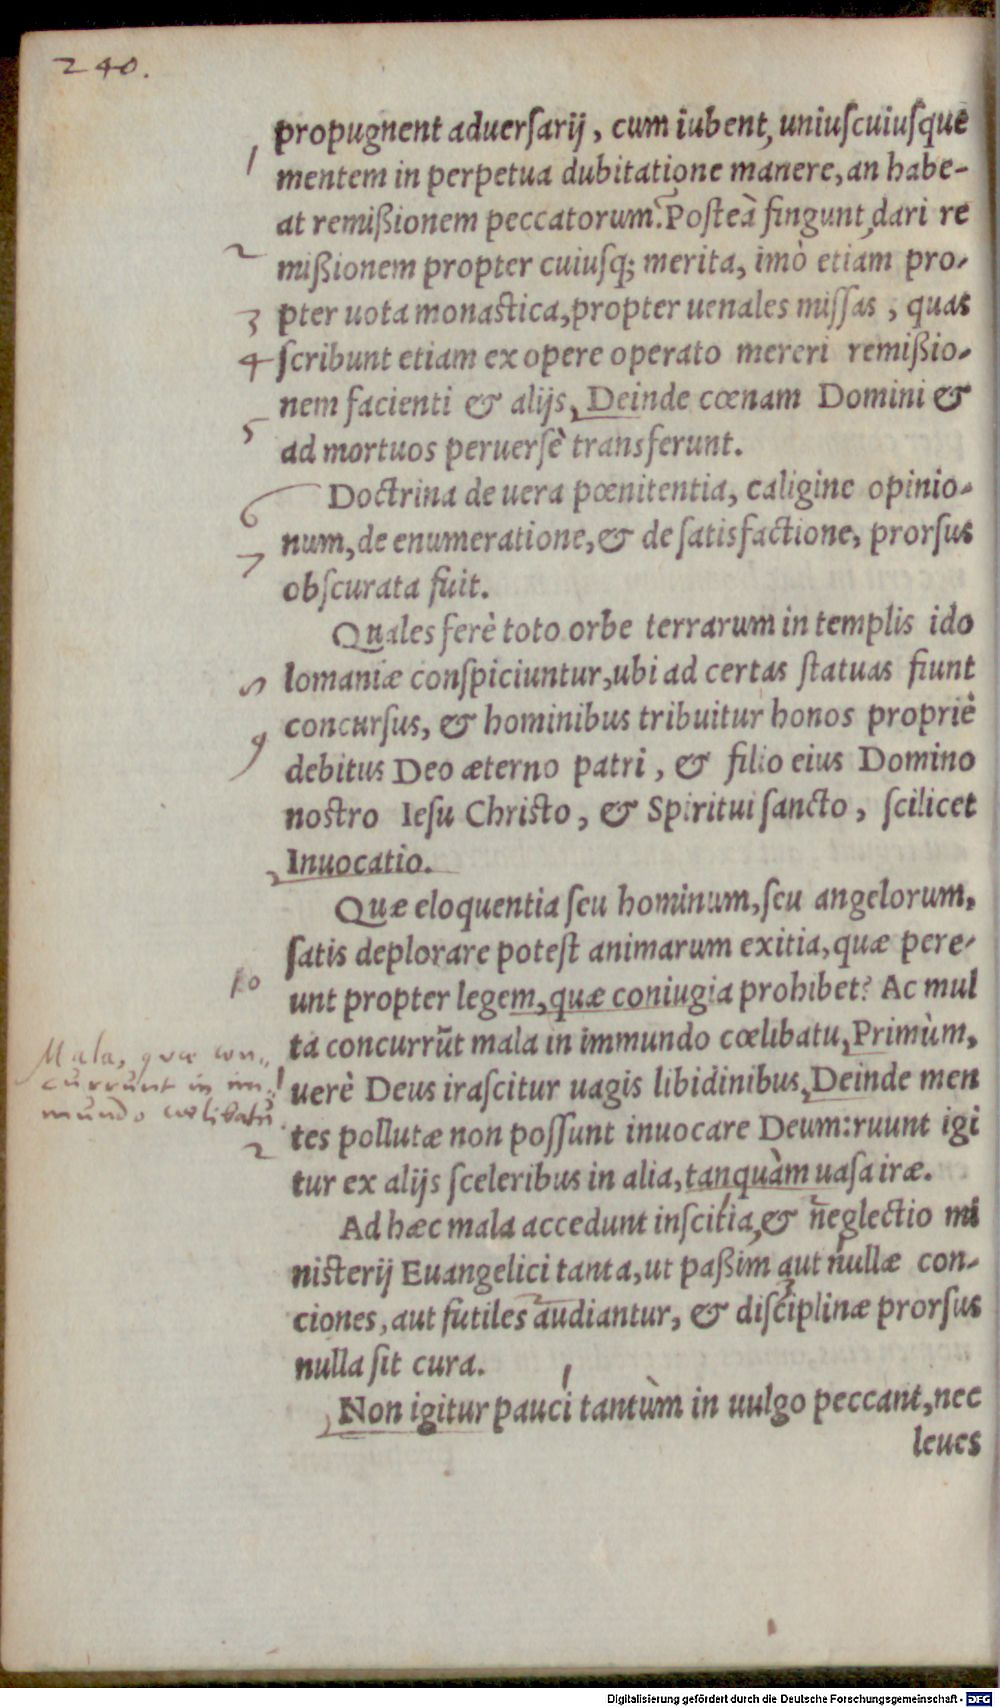 240.
propugnent aduersarij, cum iubent, uniuscuiusque
1
mentem in perpetua dubitatione manere, an habe-
at remißionem peccatorum. Posteà fingunt, dari re
2
mißionem propter cuiusq; merita, imò etiam pro-
3
pter uota monastica, propter uenales missas, quas
4
scribunt etiam ex opere operato mereri remißio-
nem facienti & alijs, Deinde cœnam Domini &
5
ad mortuos peruersè transferunt.
6
Doctrina de uera pœnitentia, caligine opinio-
num, de enumeratione, & de satisfactione, prorsus
7
obscurata fuit.
Quales ferè toto orbe terrarum in templis ido
8
lomaniæ conspiciuntur, ubi ad certas statuas fiunt
concursus, & hominibus tribuitur honos propriè
9
debitus Deo æterno patri, & filio eius Domino
nostro Iesu Christo, & Spiritui sancto, scilicet
Inuocatio.
Quæ eloquentia seu hominum, seu angelorum,
satis deplorare potest animarum exitia, quæ pere-
10
unt propter legem, quæ coniugia prohibet? Ac mul
ta concurrũt mala in immundo cœlibatu, Primùm,
Mala, quæ con-
currunt in im-
mundo cœlibatu.
1
uerè Deus irascitur uagis libidinibus, Deinde men
tes pollutæ non possunt inuocare Deum: ruunt igi
2
tur ex alijs sceleribus in alia, tanquàm uasa iræ.
Ad hæc mala accedunt inscitia, & neglectio mi
nisterij Euangelici tanta, ut paßim aut nullæ con-
ciones, aut futiles audiantur, & disciplinæ prorsus
nulla sit cura.
Non igitur pauci tantùm in uulgo peccant, nec
leues
Digitalisierung gefördert durch die Deutsche Forschungsgemeinschaft - DFG